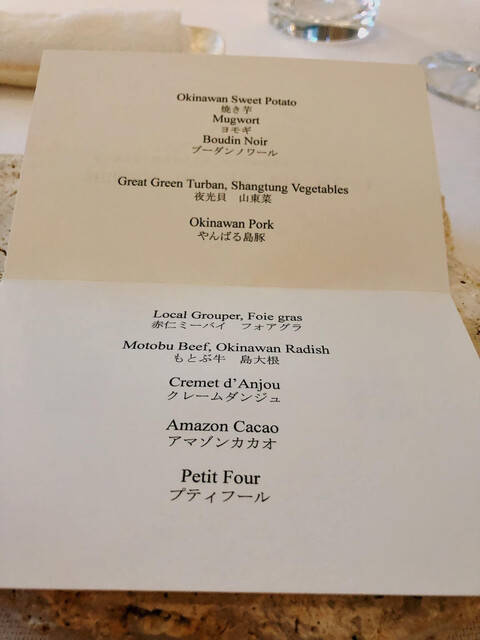 Okinawan Sweet Potato
焼き芋
Mugwort
ヨモギ
Boudin Noir
ブーダンノワール
Great Green Turban, Shangtung Vegetables
夜光貝　山東菜
Okinawan Pork
やんばる島豚
Local Grouper, Foie gras
赤仁ミーバイ　フォアグラ
Motobu Beef, Okinawan Radish
もとぶ牛　島大根
Cremet d'Anjou
クレームダンジュ
Amazon Cacao
アマゾンカカオ
Petit Four
プティフール